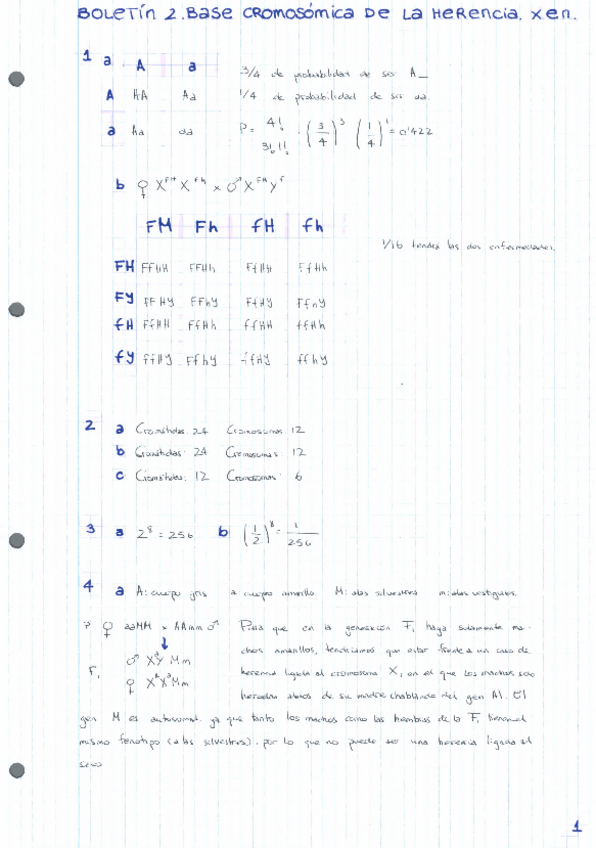 BOLETÍN 2. BASE CROMOSÓMICA DE LA HERENCIA. XEN.
1 a A a 3/4 de probabilidad de ser A_
A AA Aa 1/4 de probabilidad de ser aa
a Aa aa P = 4!/3!1! · (3/4)³ (1/4)¹ = 0'422
b ♀ X^FH X^fh x ♂ X^FH Y^f
FM Fh fH fh
1/16 tendrá las dos enfermedades.
FH FFHH FFHh FfHH FfHh
FY FFHY FFhY FfHY FfhY
fH FfHH FfHh ffHH ffHh
fY FfHY FfhY ffHY ffhY
2 a Cromátidas: 24 Cromosomas: 12
b Cromátidas: 24 Cromosomas: 12
c Cromátidas: 12 Cromosomas: 6
3 a 2⁸ = 256 b (1/2)⁸ = 1/256
4 a A: cuerpo gris a: cuerpo amarillo M: alas silvestres m: alas vestigiales.
P ♀ aaMM x AAmm ♂ Para que en la generación F₁ haya solamente ma-
chos amarillos, tendríamos que estar frente a un caso de
♂ XᵃY Mm
herencia ligada al cromosoma X, en el que los machos solo
F₁ ♀ Mm
heredan de su madre (hablando del gen A). El
gen M es autosomal, ya que tanto los machos como las hembras de la F₁ tienen el
mismo fenotipo (alas silvestres), por lo que no puede ser una herencia ligada al
sexo
1